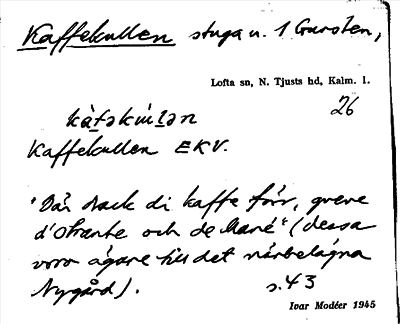 Kaffekullen stuga u. 1 Gursten,
Lofta sn, N. Tjusts hd, Kalm. l.
26
Kaffekullen EKV.
"Där drack di kaffe förr, greve
d'Otrante och de Maré" (dessa
voro ägare till det närbelägna
Nygård). s. 43
Ivar Modéer 1945